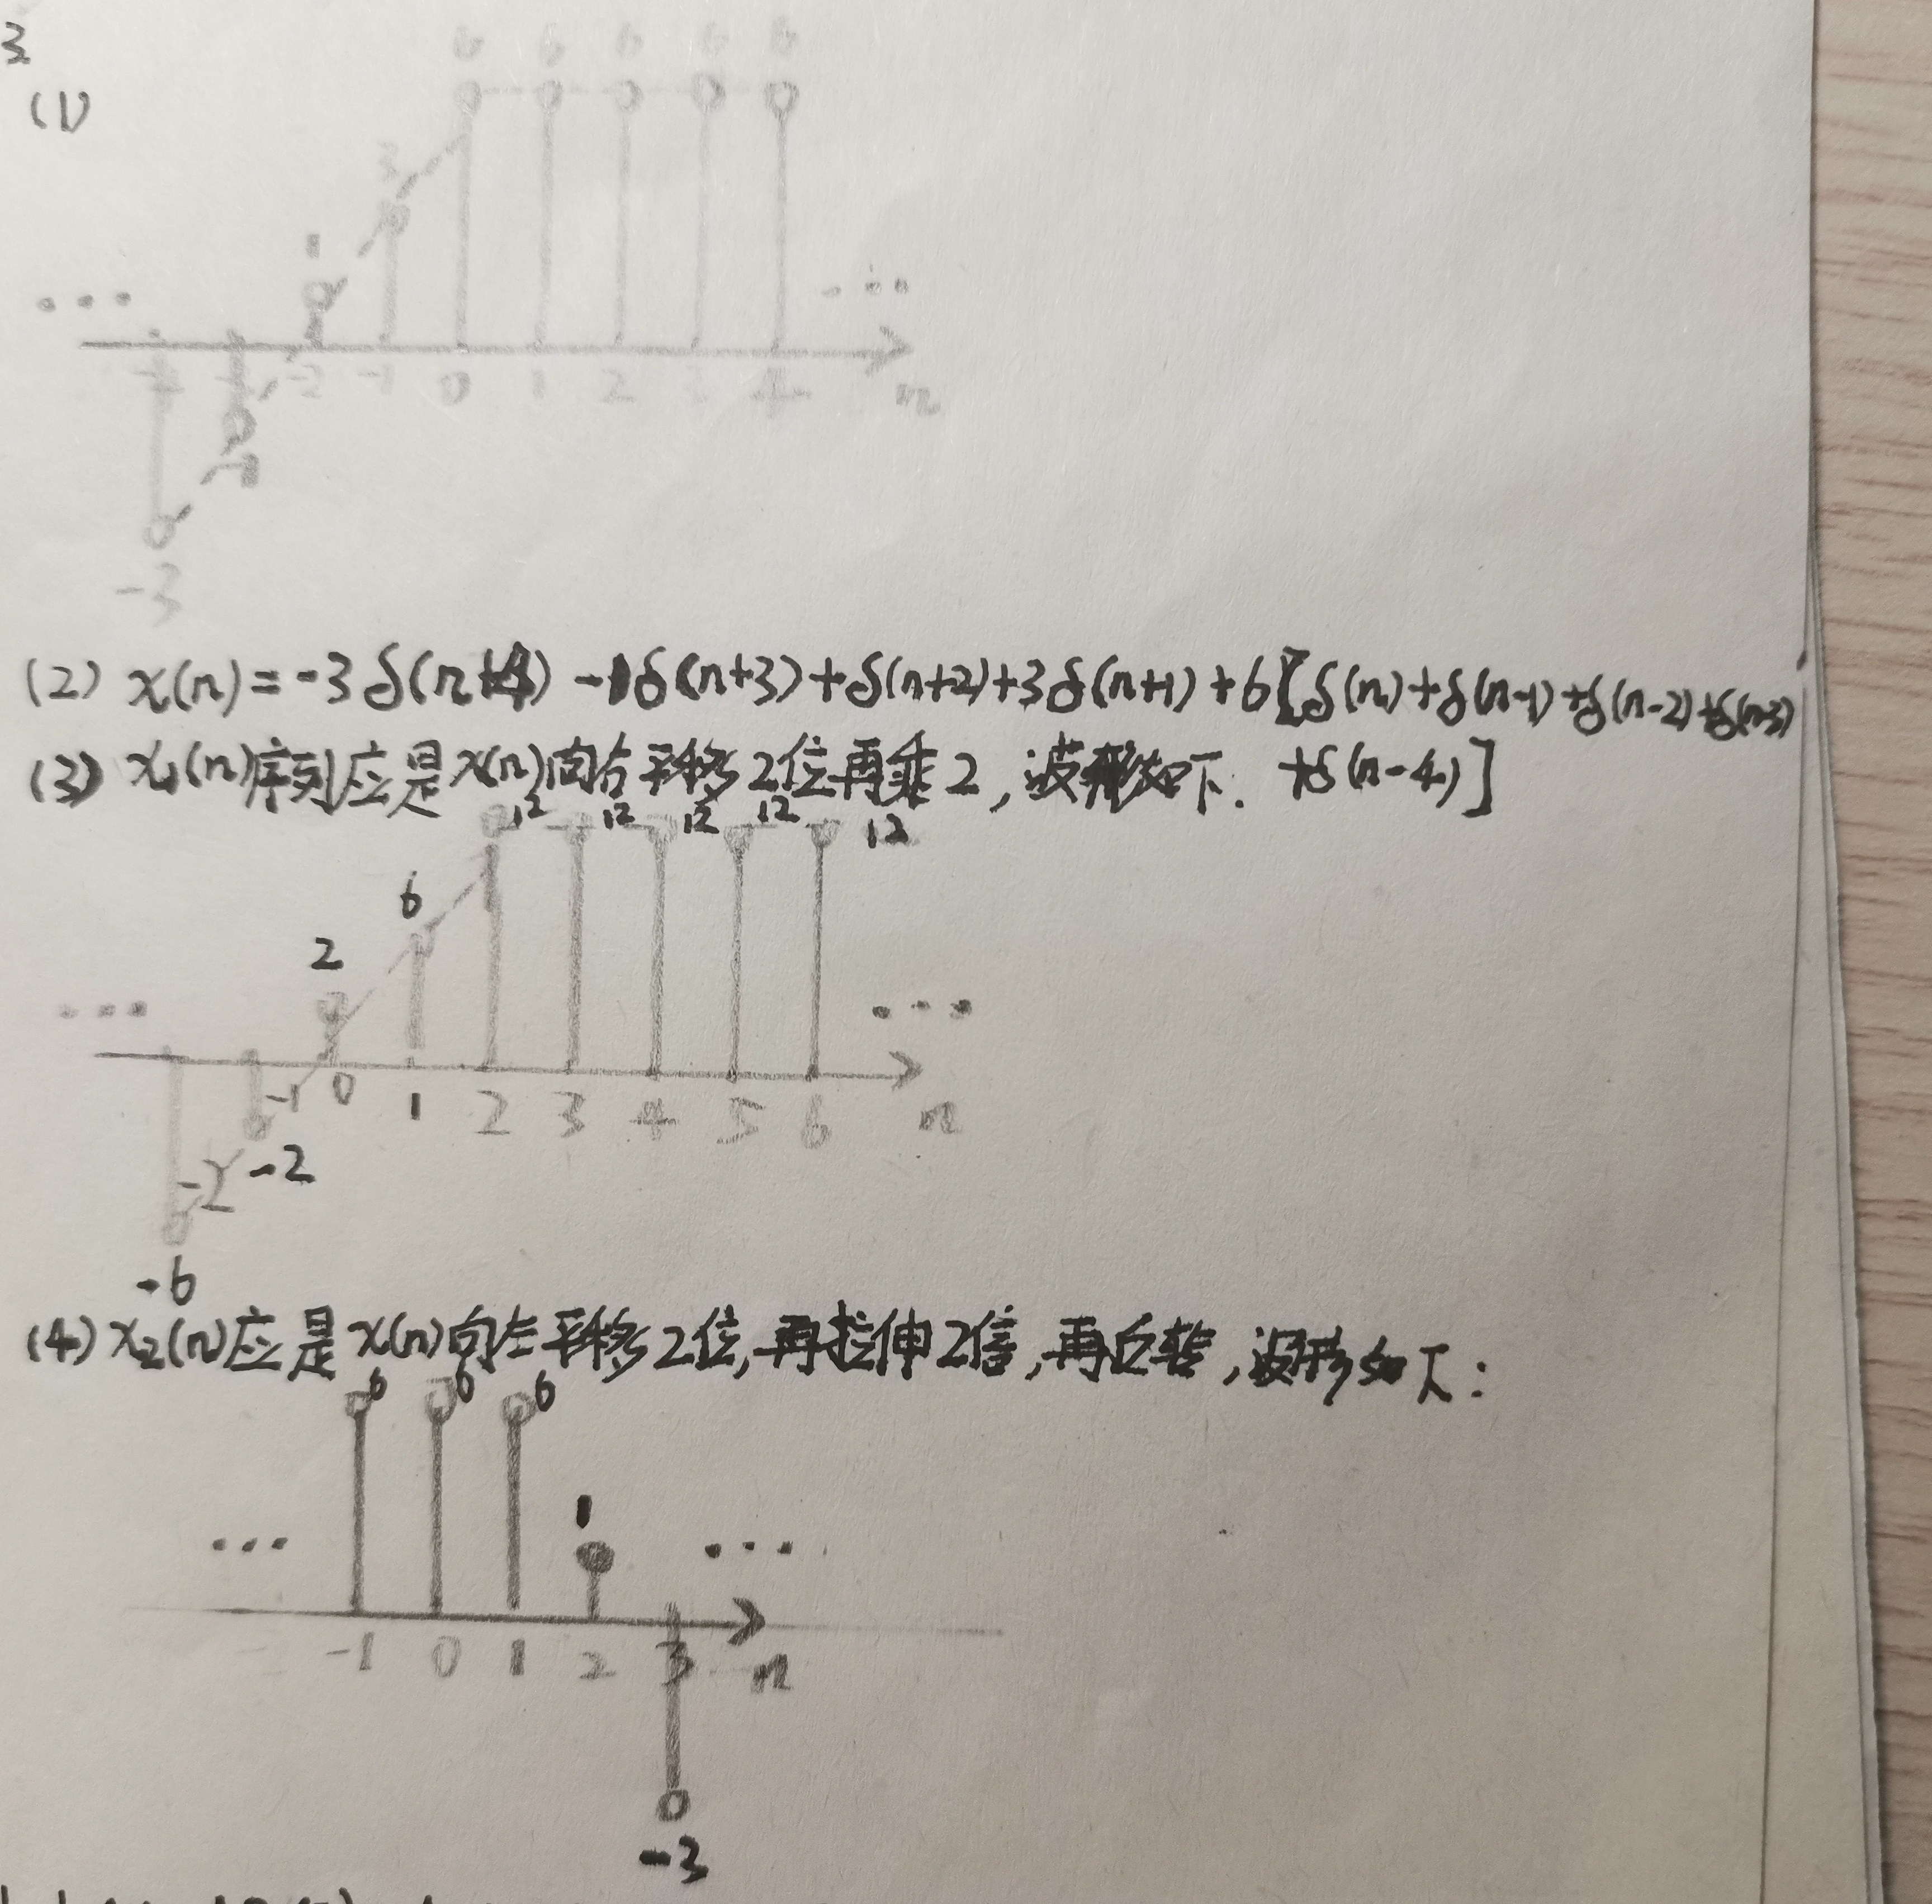 3
(1)
6 6 6 6 6
3
1
...
...
-4 -3 -2 -1 0 1 2 3 4 n
-1
-3
(2) x(n)=-3δ(n+4) -1δ(n+3)+δ(n+2)+3δ(n+1)+6[δ(n)+δ(n-1)+δ(n-2)+δ(n-3)
+δ(n-4)]
(3) x₁(n)序列应是x(n)向右平移2位再乘2,波形如下.
12 12 12 12 12
6
2
...
...
-2 -1 0 1 2 3 4 5 6 n
-2
-6
(4) x₂(n)应是x(n)向左平移2位,再拉伸2倍,再反转,波形如下:
6 6 6
1
...
...
-1 0 1 2 3 n
-3